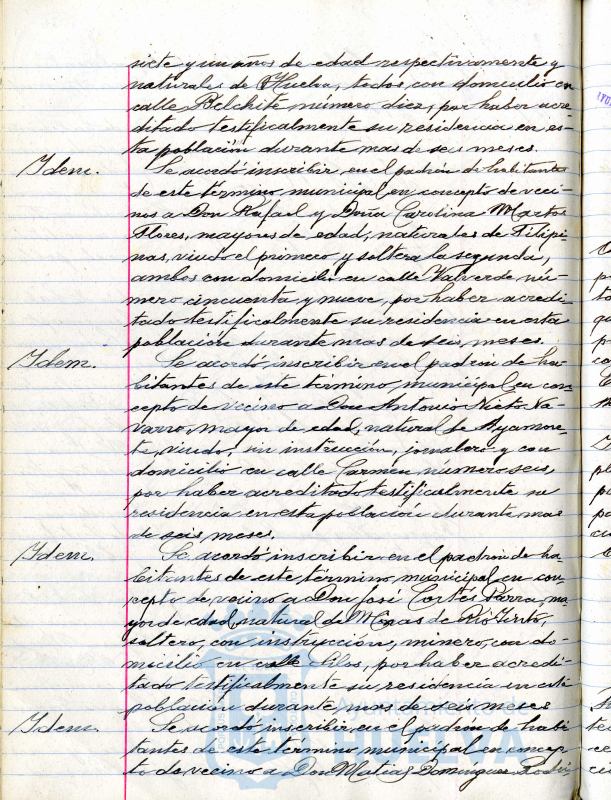 siete y un años de edad respectivamente y
naturales de Huelva, todos con domicilio en
calle Belchite número diez, por haber acre-
ditado testificalmente su residencia en es-
ta población durante mas de seis meses.
Idem. Se acordó inscribir en el padrón de habitantes
de este término municipal en concepto de veci-
nos a Don Rafael y Doña Carolina Martos
Flores, mayores de edad, naturales de Filipi-
nas, viudo el primero y soltera la segunda,
ambos con domicilio en calle Valverde nú-
mero cincuenta y nueve, por haber acredi-
tado testificalmente su residencia en esta
población durante mas de seis meses.
Idem. Se acordó inscribir en el padrón de ha-
bitantes de este término municipal en con-
cepto de vecino a Don Antonio Nieto Na-
varro, mayor de edad, natural de Ayamon-
te, viudo, sin instrucción, jornalero y con
domicilio en calle Carmen número seis,
por haber acreditado testificalmente su
residencia en esta población durante mas
de seis meses.
Idem. Se acordó inscribir en el padrón de ha-
bitantes de este término municipal en con-
cepto de vecino a Don José Cortés Parra, ma-
yor de edad, natural de Minas de Rio Tinto,
soltero, con instrucción, minero, con do-
micilio en calle Silos, por haber acredi-
tado testificalmente su residencia en esta
población durante mas de seis meses
Idem. Se acordó inscribir en el padrón de habi-
tantes de este término municipal en concep-
to de vecino a Don Matias Dominguez Rodri-
Ayuntamiento de
HUELVA